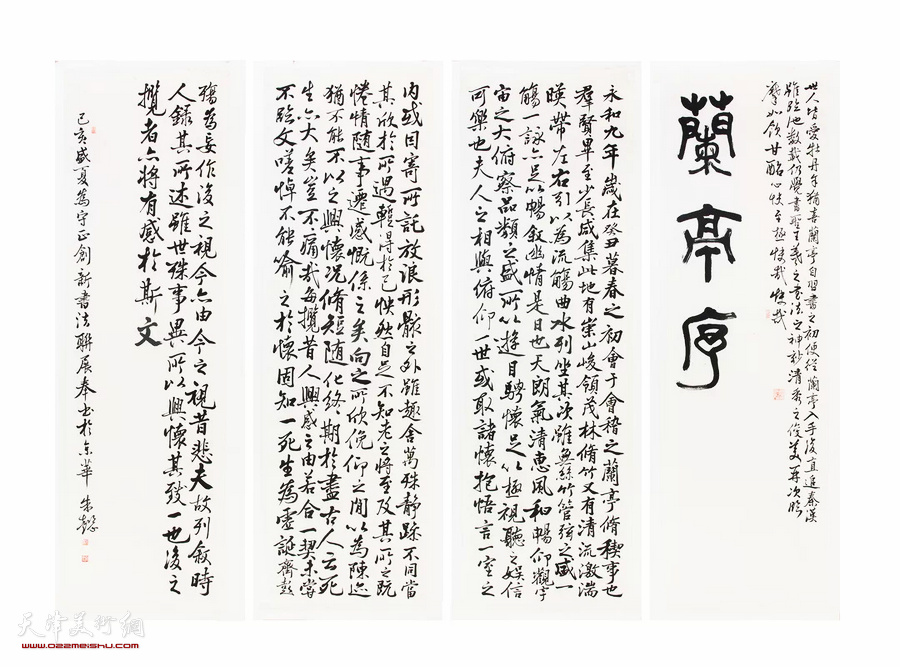 世人皆愛牡丹予猶喜蘭亭自習書之初便從蘭亭入手後直追秦漢
雖臨池數載仍覺書聖王羲之書法之神秒清秀之俊美再次臨
摹如飲甘酩心快至極快哉快哉
蘭亭序
永和九年歲在癸丑暮春之初會于會稽之蘭亭脩稧事也
羣賢畢至少長咸集此地有崇山峻領茂林脩竹又有清流激湍
暎帶左右引以為流觴曲水列坐其次雖無絲竹管弦之盛一
觴一詠亦足以暢叙幽情是日也天朗氣清惠風和暢仰觀宇
宙之大俯察品類之盛所以遊目騁懷足以極視聽之娛信
可樂也夫人之相與俯仰一世或取諸懷抱悟言一室之
內或因寄所託放浪形骸之外雖趣舍萬殊静躁不同當
其欣於所遇輒得於己怏然自足不知老之將至及其所之既
惓情隨事遷感慨係之矣向之所欣俛仰之閒以為陳迹
猶不能不以之興懷況脩短隨化終期於盡古人云死
生亦大矣豈不痛哉每攬昔人興感之由若合一契未嘗
不臨文嗟悼不能喻之於懷固知一死生為虛誕齊彭
殤為妄作後之視今亦由今之視昔悲夫故列叙時
人錄其所述雖世殊事異所以興懷其致一也後之
攬者亦將有感於斯文
己亥盛夏為守正創新書法聯展奉书於京華 朱懿
天津美術網
www.022meishu.com